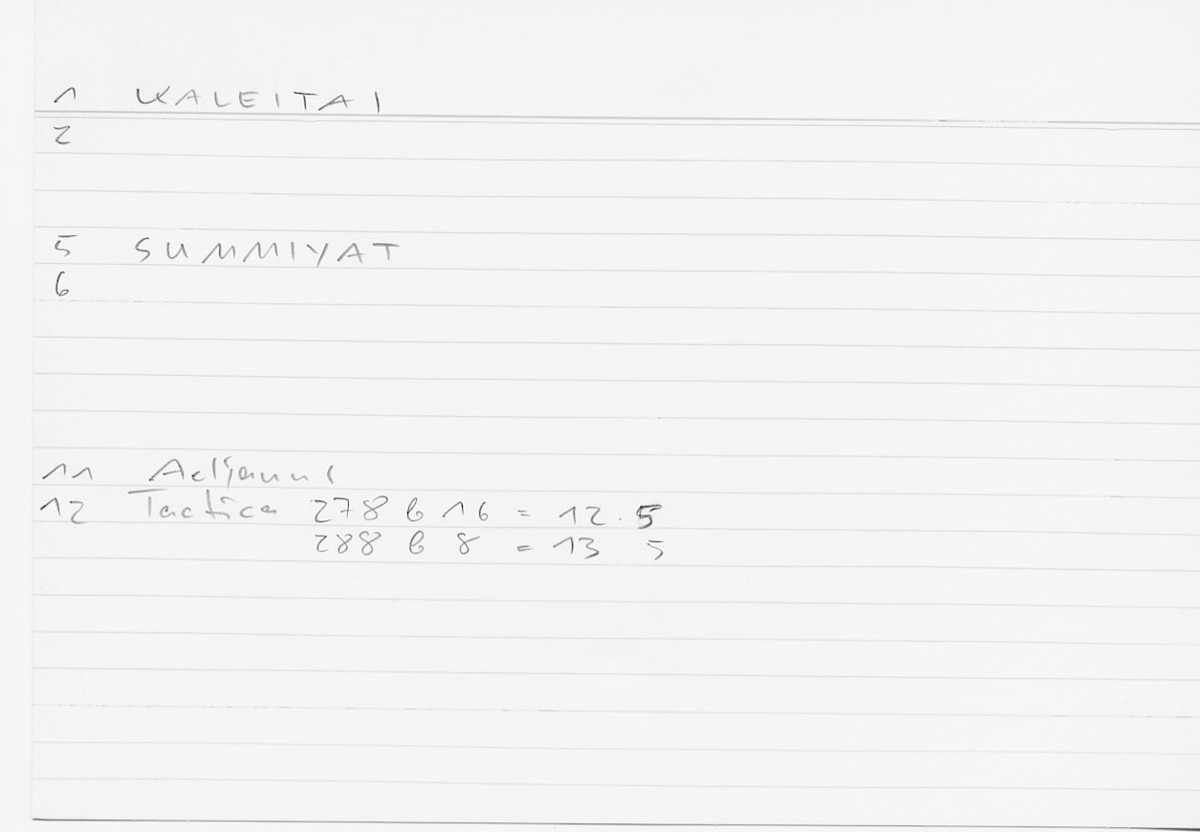 1 KALEITAI
2
5 SUMMIYAT
6
11
12 Tactica 278 b 16 = 12. 5
288 b 8 = 13 5